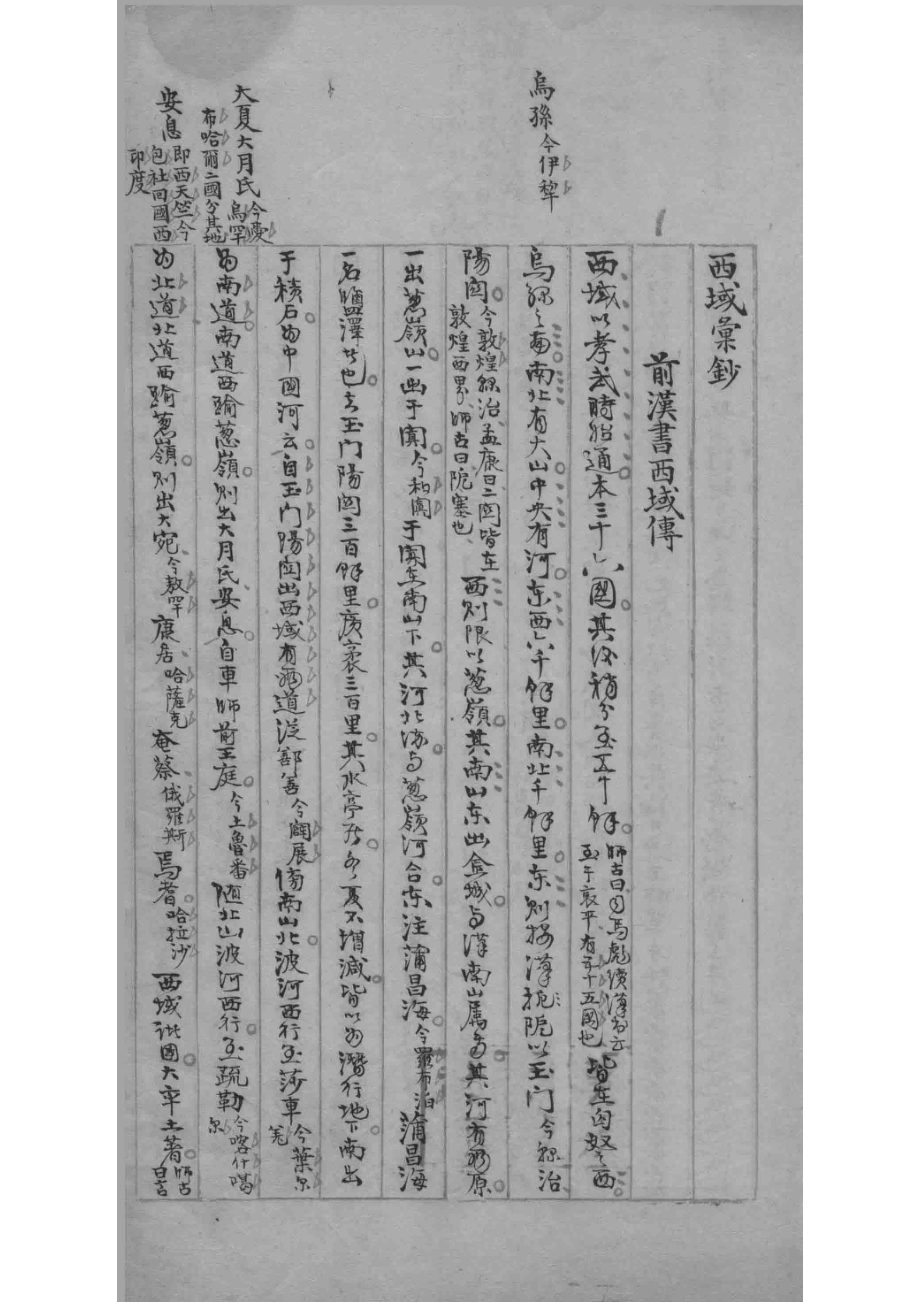 西域彙鈔
前漢書西域傳
西域以孝武時始通本三十六國其後稍分至五十餘師古曰司馬彪續漢書云至于哀平有五十五國也皆在匈奴之西
烏孫之南南北有大山中央有河东西六千餘里南北千餘里东則接漢扼阸以玉門今縣治
陽関今敦煌縣治孟康曰二関皆在敦煌西界師古曰阸塞也西則限以葱嶺其南山东出金城与漢南山属焉其河有兩原
一出葱嶺山一出于窴今和闐于窴在南山下其河北流与葱嶺河合东注蒲昌海今羅布泊蒲昌海
一名鹽澤者也去玉门陽関三百餘里廣袤三百里其水亭居冬夏不增減皆以為潛行地下南出
于積石為中國河云自玉门陽関出西域有兩道從鄯善今闢展傍南山北波河西行至莎車今葉尔羌
為南道南道西踰葱嶺則出大月氏安息自車師前王庭今土魯番随北山波河西行至疏勒今喀什噶尔
為北道北道西踰葱嶺則出大宛今敖罕康居哈薩克奄蔡俄羅斯焉耆哈拉沙西域諸國大率土著師古曰言
烏孫今伊犂
大夏大月氏今愛烏罕布哈爾二國分其地
安息即西天竺今包社回國西印度